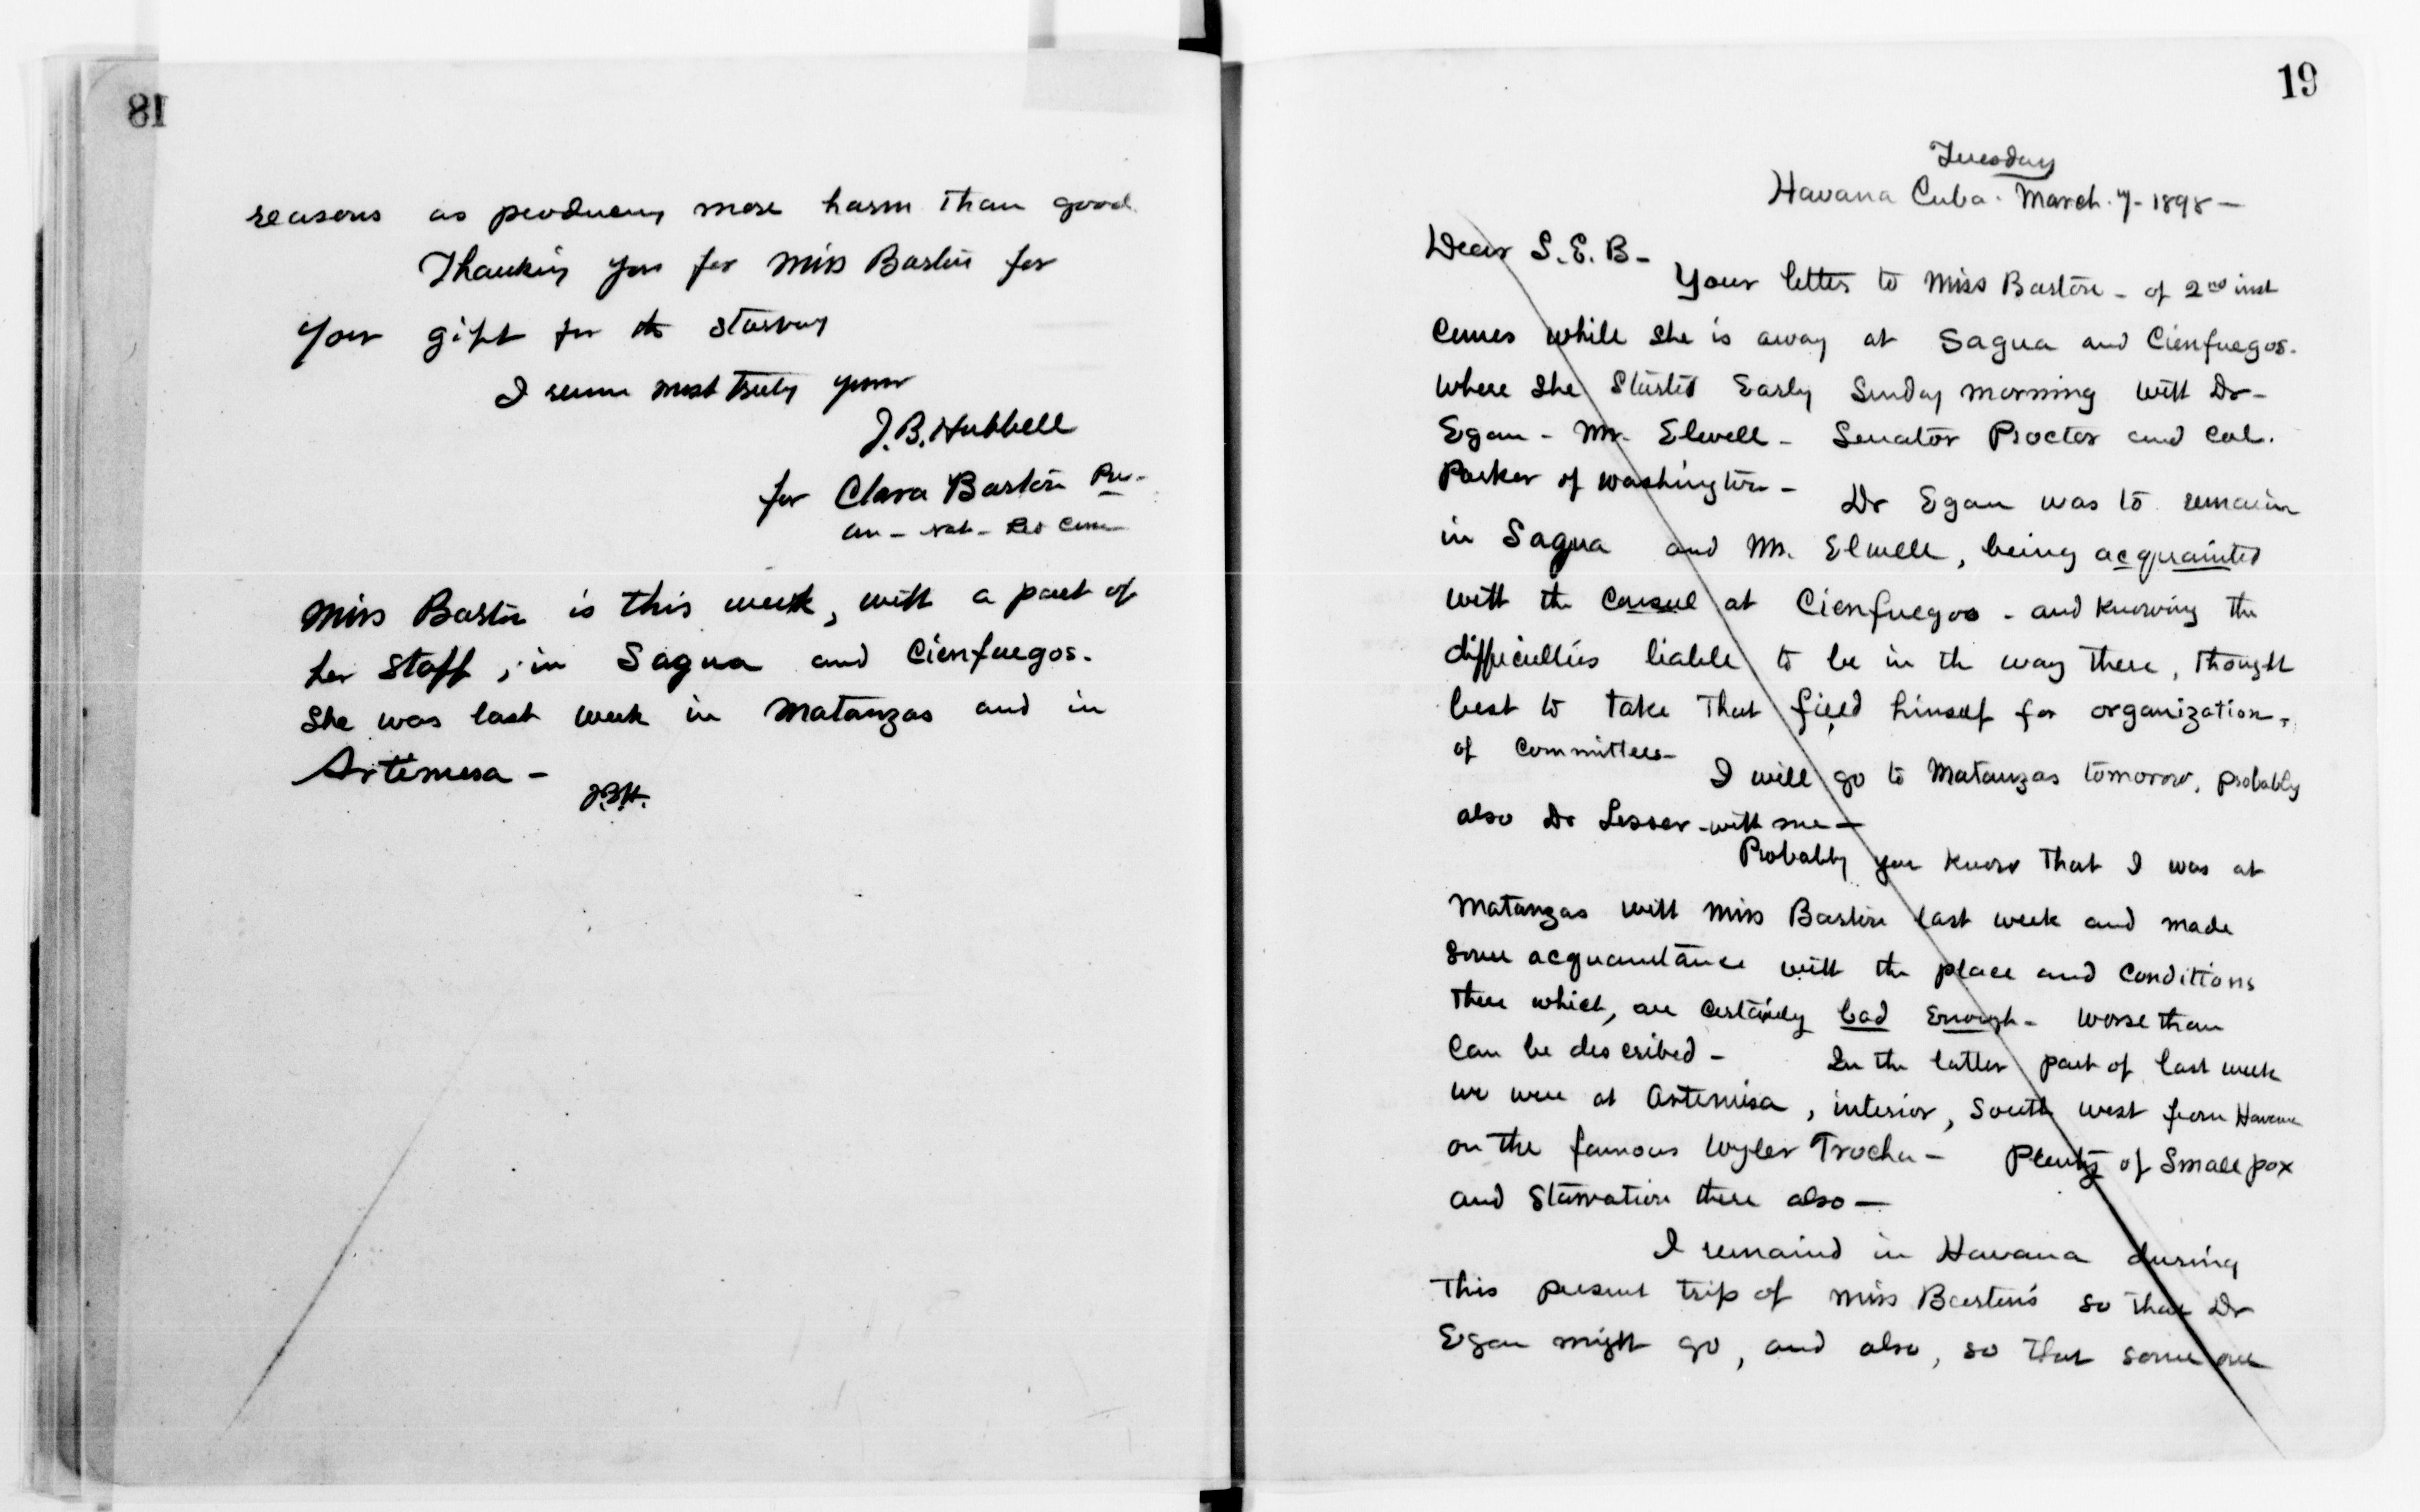 18
reasons as producing more harm than good.
Thanking you for Miss Barton for
your gift for the starving
I remain most truly yours
J.B. Hubbell
for Clara Barton Pres.
am - nat - Red Cross
Miss Barton is this week, with a part of
her staff, in Sagua and Cienfuegos.
She was last week in Matanzas and in
Artemesa -
J.B.H.
19
Tuesday
Havana Cuba. March. 7- 1898 -
Dear S.E.B-
Your letter to Miss Barton - of 2nd inst
comes while she is away at Sagua and Cienfuegos.
where she started Early Sunday morning with Dr-
Egan - Mr. Elwell - Senator Proctor and Col.
Parker of Washington - Dr Egan was to remain
in Sagua and Mr. Elwell, being acquainted
with the Consul at Cienfuegos - and knowing the
difficulties liable to be in the way there, thought
best to take that field himself for organization,
of committees -
I will go to Matanzas tomorow, probably
also Dr Lesser - with me -
Probably you know that I was at
Matanzas with Miss Barton last week and made
some acquaintance with the place and conditions
there which, are certainly bad Enough - worse than
can be described - In the latter part of last week
we were at Artemisa, interior, South west from Havana
on the famous Wyler Trocha - Plenty of Small pox
and Starvation there also -
I remaind in Havana during
this present trip of Miss Barton's so that Dr
Egan might go, and also, so that some one